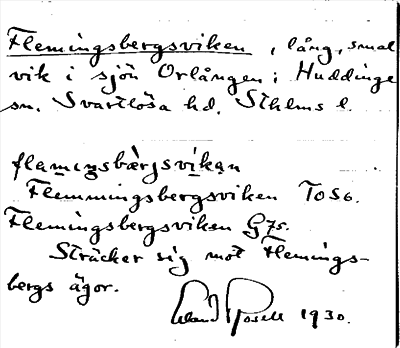 Flemingsbergsviken, lång, smal
vik i sjön Orlången i Huddinge
sn. Svartlösa hd. Sthlms l.
flamıŋsbærjsvikan
Flemmingsbergsviken TOS6.
Flemingsbergsviken G75.
Sträcker sig mot Flemings-
bergs ägor.
Erland Rosell 1930.